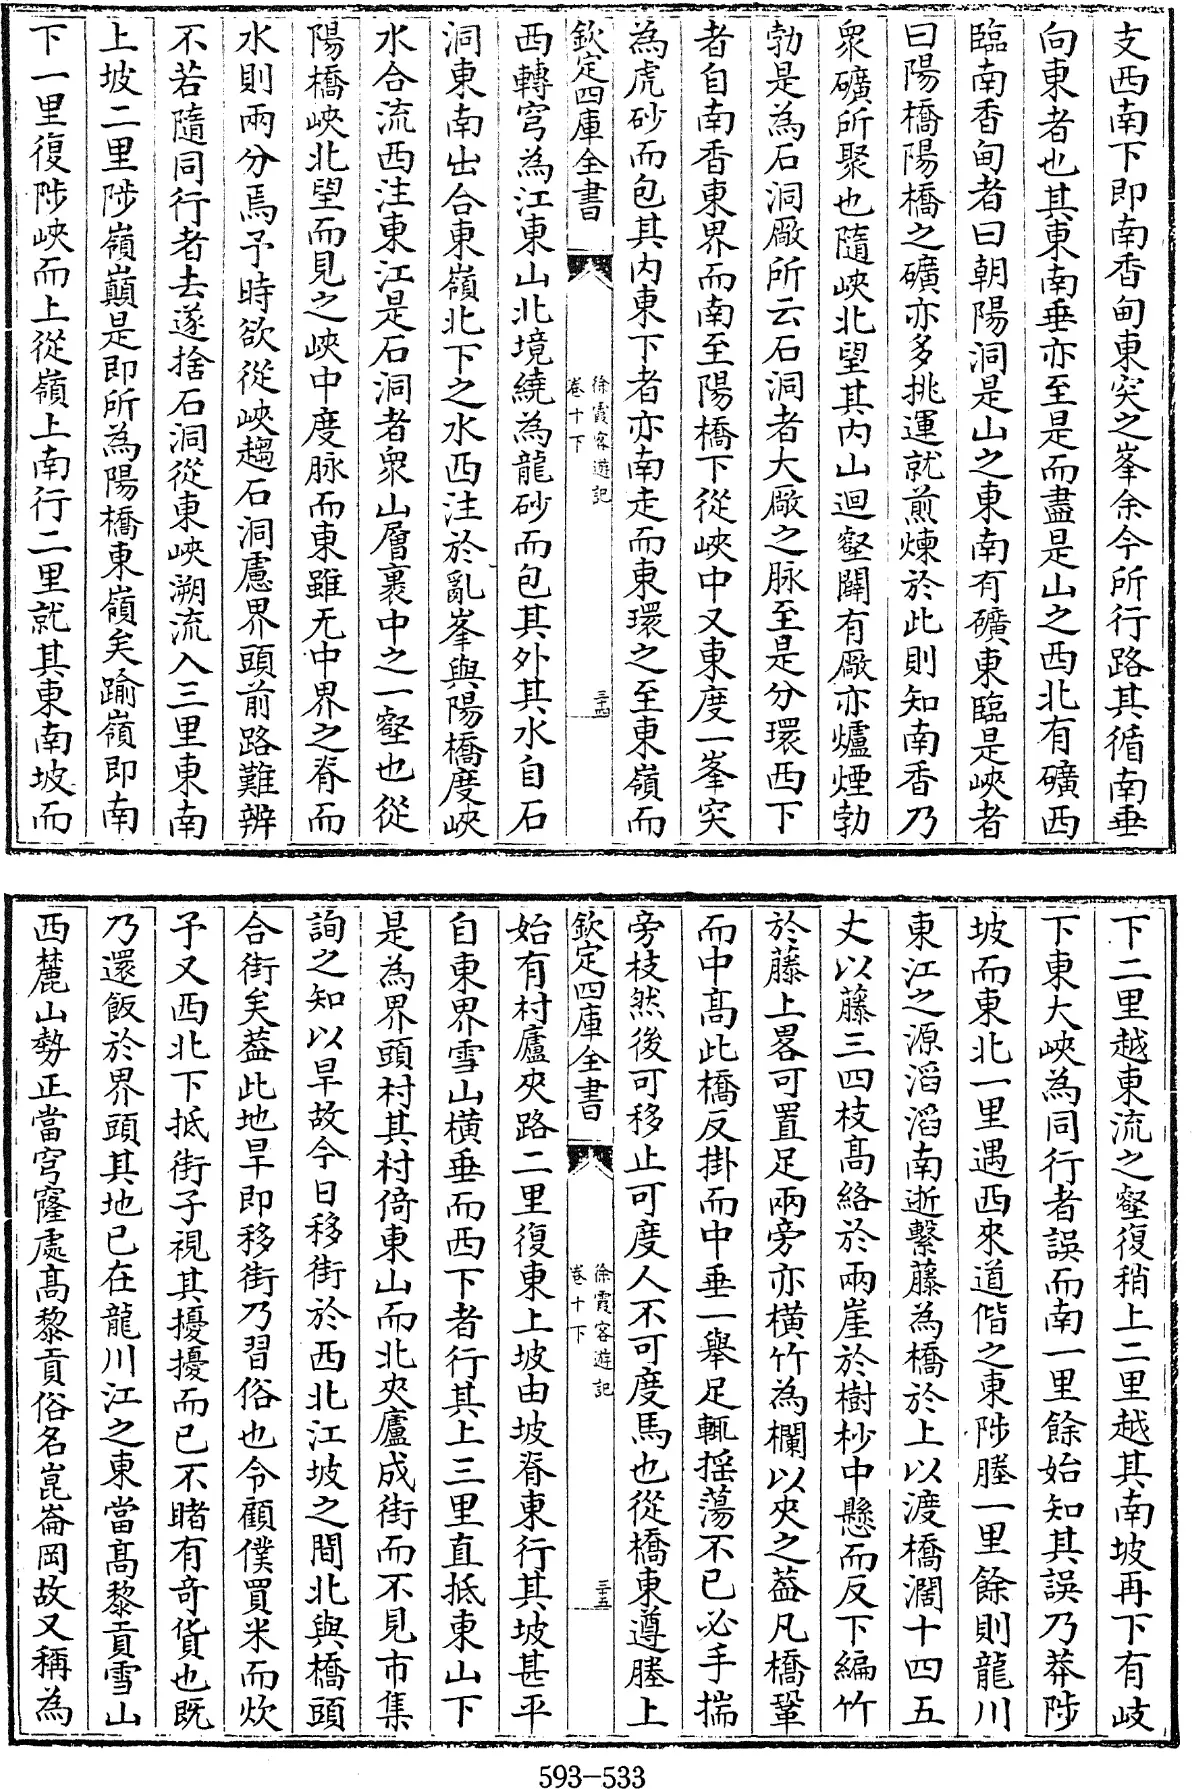 支西南下即南香甸東突之峯余今所行路其循南垂
向東者也其東南垂亦至是而盡是山之西北有礦西
臨南香甸者曰朝陽洞是山之東南有礦東臨是峽者
曰陽橋陽橋之礦亦多挑運就煎煉於此則知南香乃
衆礦所聚也隨峽北望其內山迴壑闢有厰亦爐煙勃
勃是為石洞厰所云石洞者大厰之脉至是分環西下
者自南香東界而南至陽橋下從峽中又東度一峯突
為虎砂而包其內東下者亦南走而東環之至東嶺而
欽定四庫全書
徐霞客遊記
卷十下
三十四
西轉穹為江東山北境繞為龍砂而包其外其水自石
洞東南出合東嶺北下之水西注於亂峯與陽橋度峽
水合流西注東江是石洞者衆山層裹中之一壑也從
陽橋峽北望而見之峽中度脉而東雖无中界之脊而
水則兩分焉予時欲從峽趨石洞慮界頭前路難辨
不若隨同行者去遂捨石洞從東峽溯流入三里東南
上坡二里陟嶺巔是即所為陽橋東嶺矣踰嶺即南
下一里復陟峽而上從嶺上南行二里就其東南坡而
下二里越東流之壑復稍上二里越其南坡再下有岐
下東大峽為同行者誤而南一里餘始知其誤乃莽陟
坡而東北一里遇西來道偕之東陟塍一里餘則龍川
東江之源滔滔南逝繫藤為橋於上以渡橋濶十四五
丈以藤三四枝髙絡於兩崖於樹杪中懸而反下編竹
於藤上畧可置足兩旁亦橫竹為欄以夾之葢凡橋鞏
而中髙此橋反掛而中垂一舉足輒揺蕩不已必手揣
旁枝然後可移止可度人不可度馬也從橋東遵塍上
欽定四庫全書
徐霞客遊記
卷十下
三十五
始有村廬夾路二里復東上坡由坡脊東行其坡甚平
自東界雪山橫垂而西下者行其上三里直抵東山下
是為界頭村其村倚東山而北夾廬成街而不見市集
詢之知以旱故今日移街於西北江坡之間北與橋頭
合街矣葢此地旱即移街乃習俗也令顧僕買米而炊
予又西北下抵街子視其擾擾而已不睹有奇貨也既
乃還飯於界頭其地已在龍川江之東當髙黎貢雪山
西麓山勢正當穹窿處髙黎貢俗名崑崙岡故又稱為
593-533